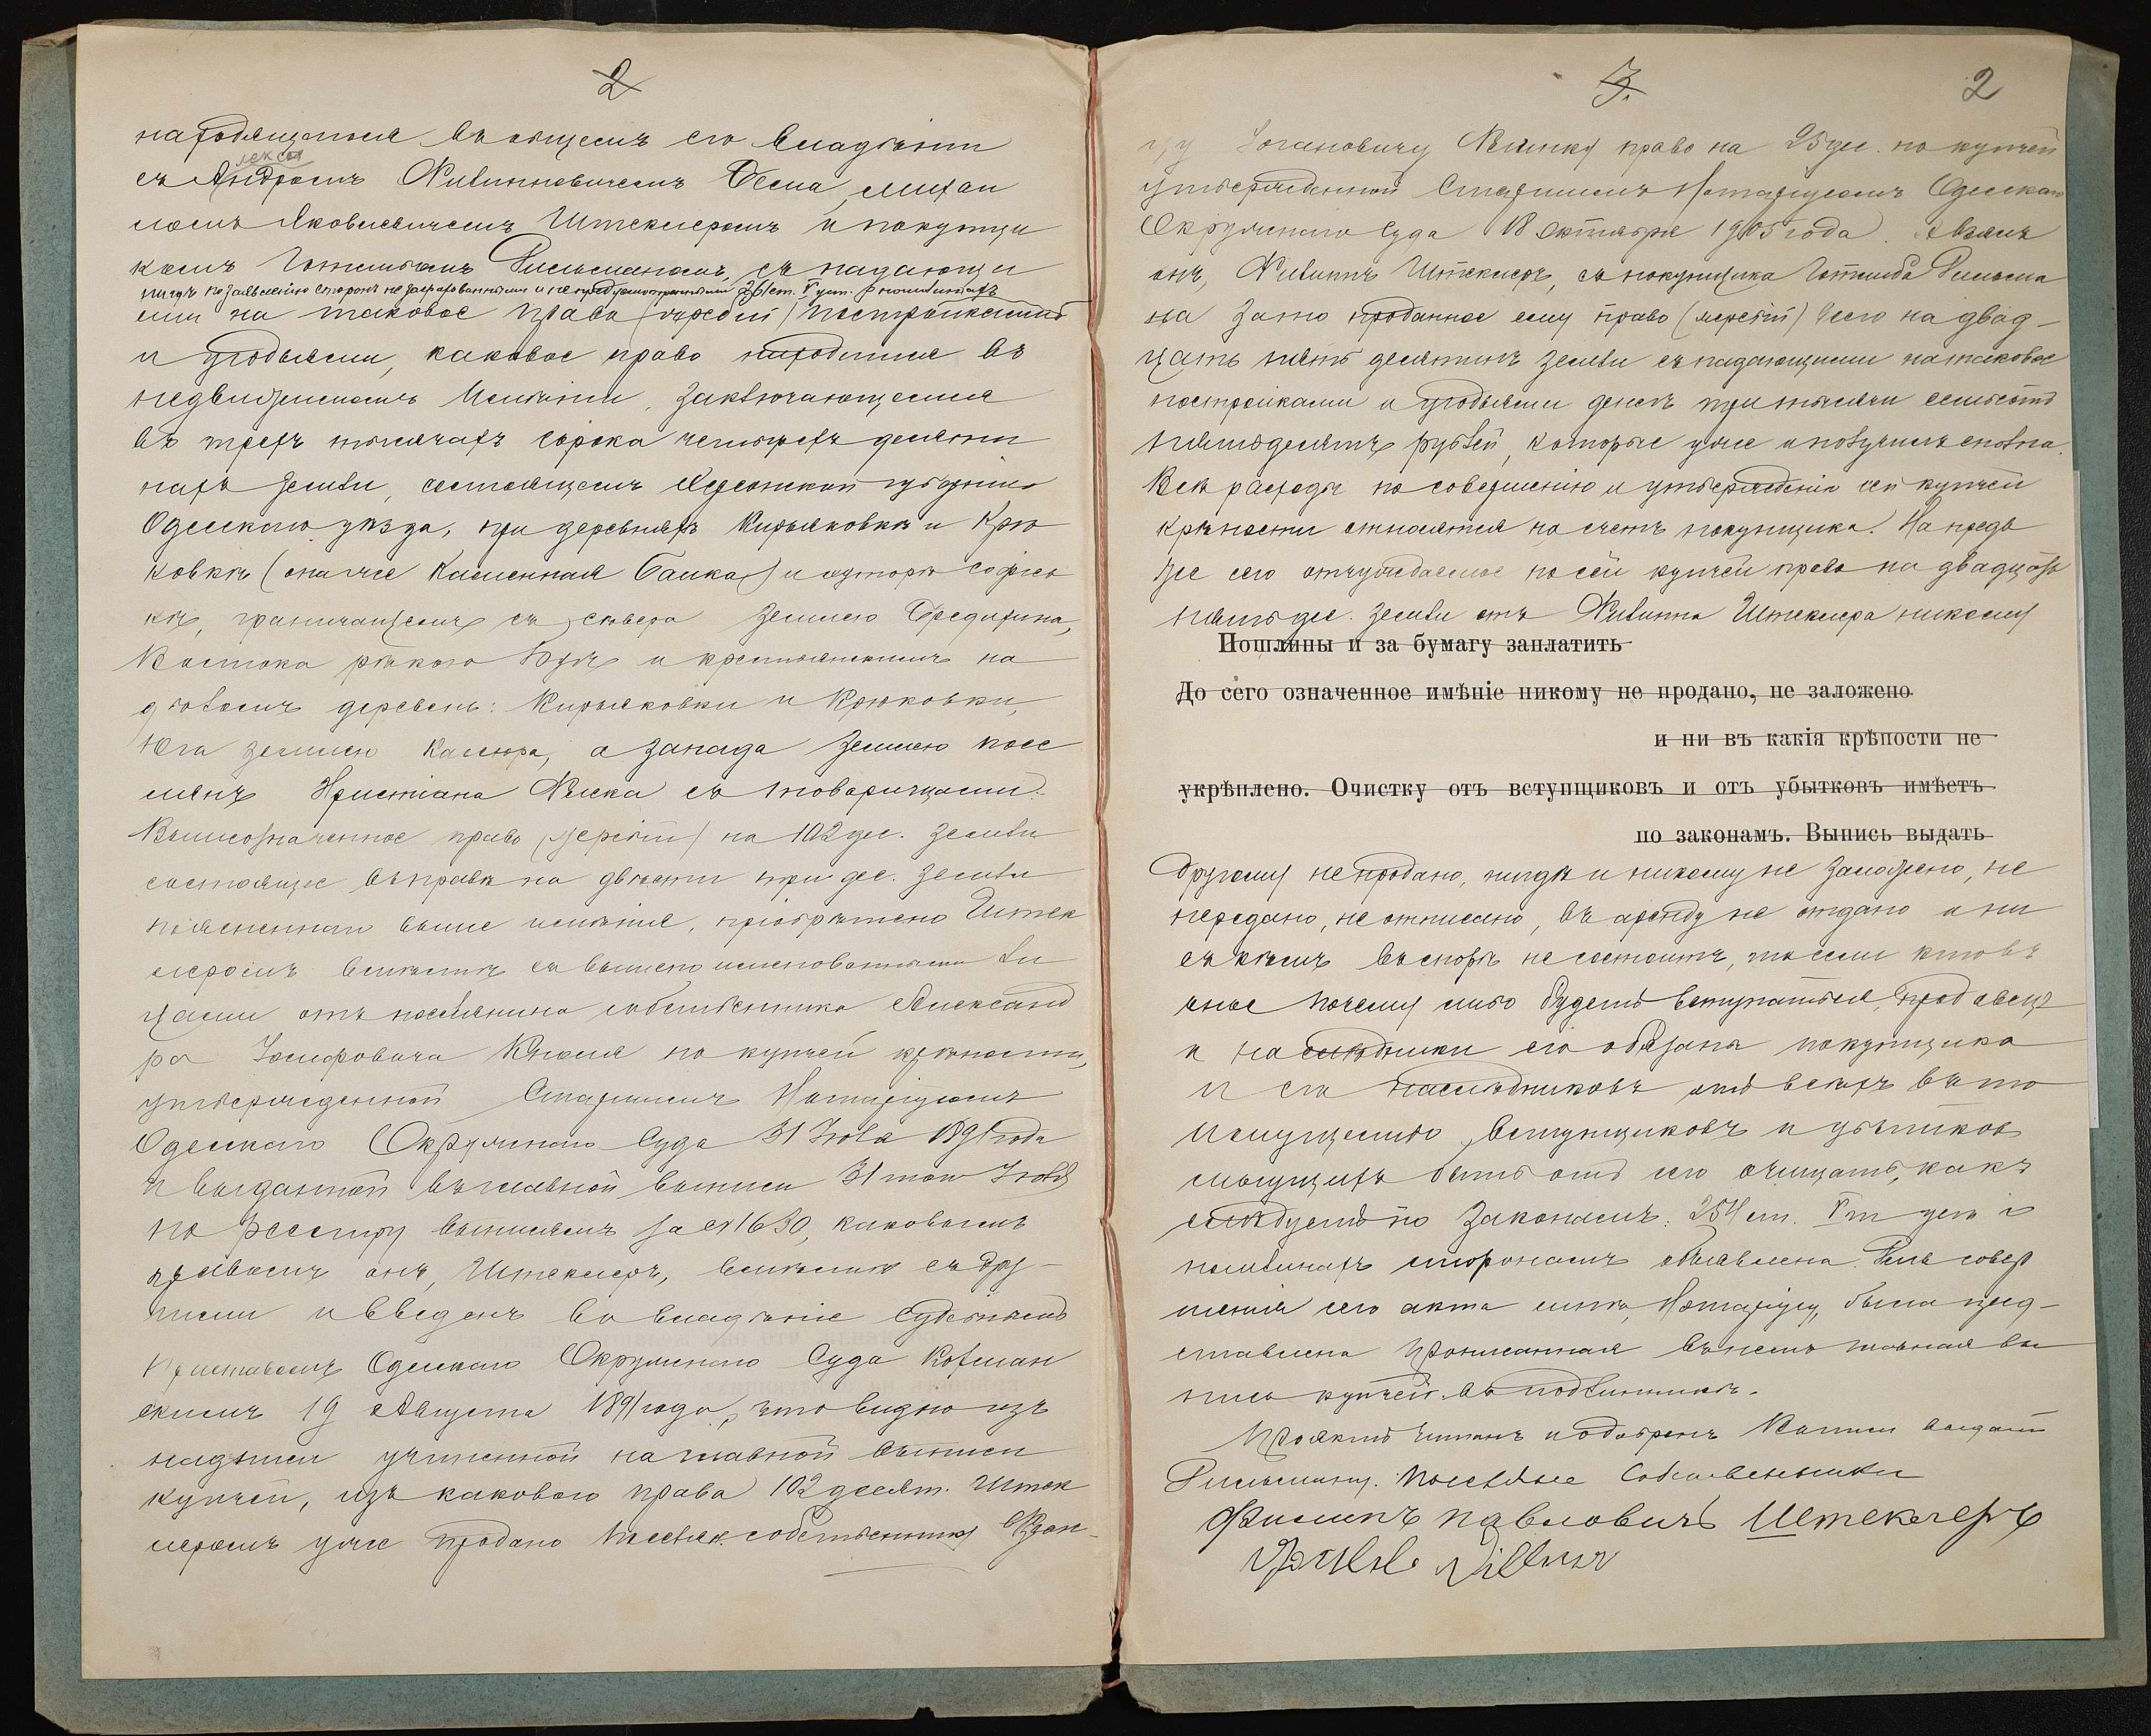 2
находящагося въ общемъ его владѣніи
лексѣ
съ Андреемъ Филипповичемъ Беша, михаи
ломъ Яковлевичемъ Штеклеромъ и покупщи
комъ Готлибомъ Гильманомъ, съ падающи
ничѣмъ по заявленію сторонъ не загражденными и не предусмотренными 261 ст. V уст. о пошлинахъ
ми на таковое право (жребій) постройками
и угодьями, каковое право находится въ
недвижимомъ имѣніи, заключающемся
въ трехъ тысячахъ сорока четырехъ десяти
нахъ земли, состоящемъ Херсонской губерніи
Одесскаго уѣзда, при деревняхъ Кирьяковкѣ и Крю
ковкѣ (она же Каменная Балка) и хуторѣ Софіев
кѣ, граничащемъ съ сѣвера землею Бредихина,
Востока рѣкою Бугъ и крестьянскимъ на
дѣломъ деревень: Кирьяковки и Крюковки,
Юга землею, а запада землею посе
лянъ Христіана съ товарищами.
Вышеозначенное право (жребій) на 102 дес. земли
состоящее въ правѣ на двѣсти три дес. земли
поясненнаго выше имѣнія, пріобрѣтено Штек
леромъ вмѣстѣ съ вышепоименованными ли
цами отъ поселянина собственника Александ
ра Іосифовича по купчей крѣпости,
утвержденной Старшимъ Нотаріусомъ
Одесскаго Окружнаго Суда 31 Іюля 1891 года
и выданной въ главной выписи 31 того Іюля
по реестру выписемъ за № 1630, каковымъ
правомъ онъ, Штеклеръ, вмѣстѣ съ дру-
гими и введенъ во владѣніе Судебнымъ
Приставомъ Одесскаго Окружнаго Суда Кофман
скимъ 19 Августа 1891 года, что видно изъ
надписи учиненной на главной выписи
купчей, изъ каковаго права 102 десят. Штек
леромъ уже продано поселян. собственнику Фран-
3.
2
цу Іогановичу право на 25 дес. по купчей
утвержденной Старшимъ Нотаріусомъ Одесскаго
Окружнаго Суда 18 октября 1905 года. А взялъ
онъ, Филиппъ Штеклеръ, съ покупщика Готлиба Гильма
на за то проданное ему право (жребій) всего на двад-
цать пять десятинъ земли съ падающими на таковое
постройками и угодьями денегъ три тысячи семьсотъ
пятьдесятъ рублей, которые уже и получилъ сполна.
Всѣ расходы по совершенію и утвержденію сей купчей
крѣпости относятся на счетъ покупщика. На предь
же сего отчуждаемое по сей купчей право на двадцать
пять дес. земли отъ Филиппа Штеклера никому
Пошлины и за бумагу заплатить
До сего означенное имѣніе никому не продано, не заложено
и ни въ какія крѣпости не
укрѣплено. Очистку отъ вступщиковъ и отъ убытковъ имѣетъ
по законамъ. Выпись выдать
другому не продано, нигдѣ и никому не заложено, не
передано, не отписано, въ аренду не отдано и ни
съ кѣмъ въ спорѣ не состоитъ, то если кто въ
оное почему либо будетъ вступаться, продавецъ
и наслѣдники его обязаны покупщика
и его наслѣдниковъ отъ всѣхъ въ то
имущество вступщиковъ и убытковъ
могущихъ быть отъ сего очищать, какъ
слѣдуетъ по законамъ. 254 ст. V т уст о
пошлинахъ сторонамъ объявлена. Для совер
шенія сего акта мнѣ, Нотаріусу, была пред-
ставлена прописанная въ немъ главная вы
пись купчей въ подлинникѣ.
Проектъ читанъ и одобренъ Выписи выдать
Гильману. Поселяне Собственники
Филипъ павловичъ Штеклеръ